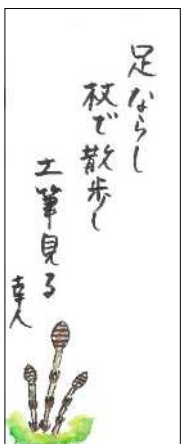 足ならし
杖で散歩し
土筆見る
幸人